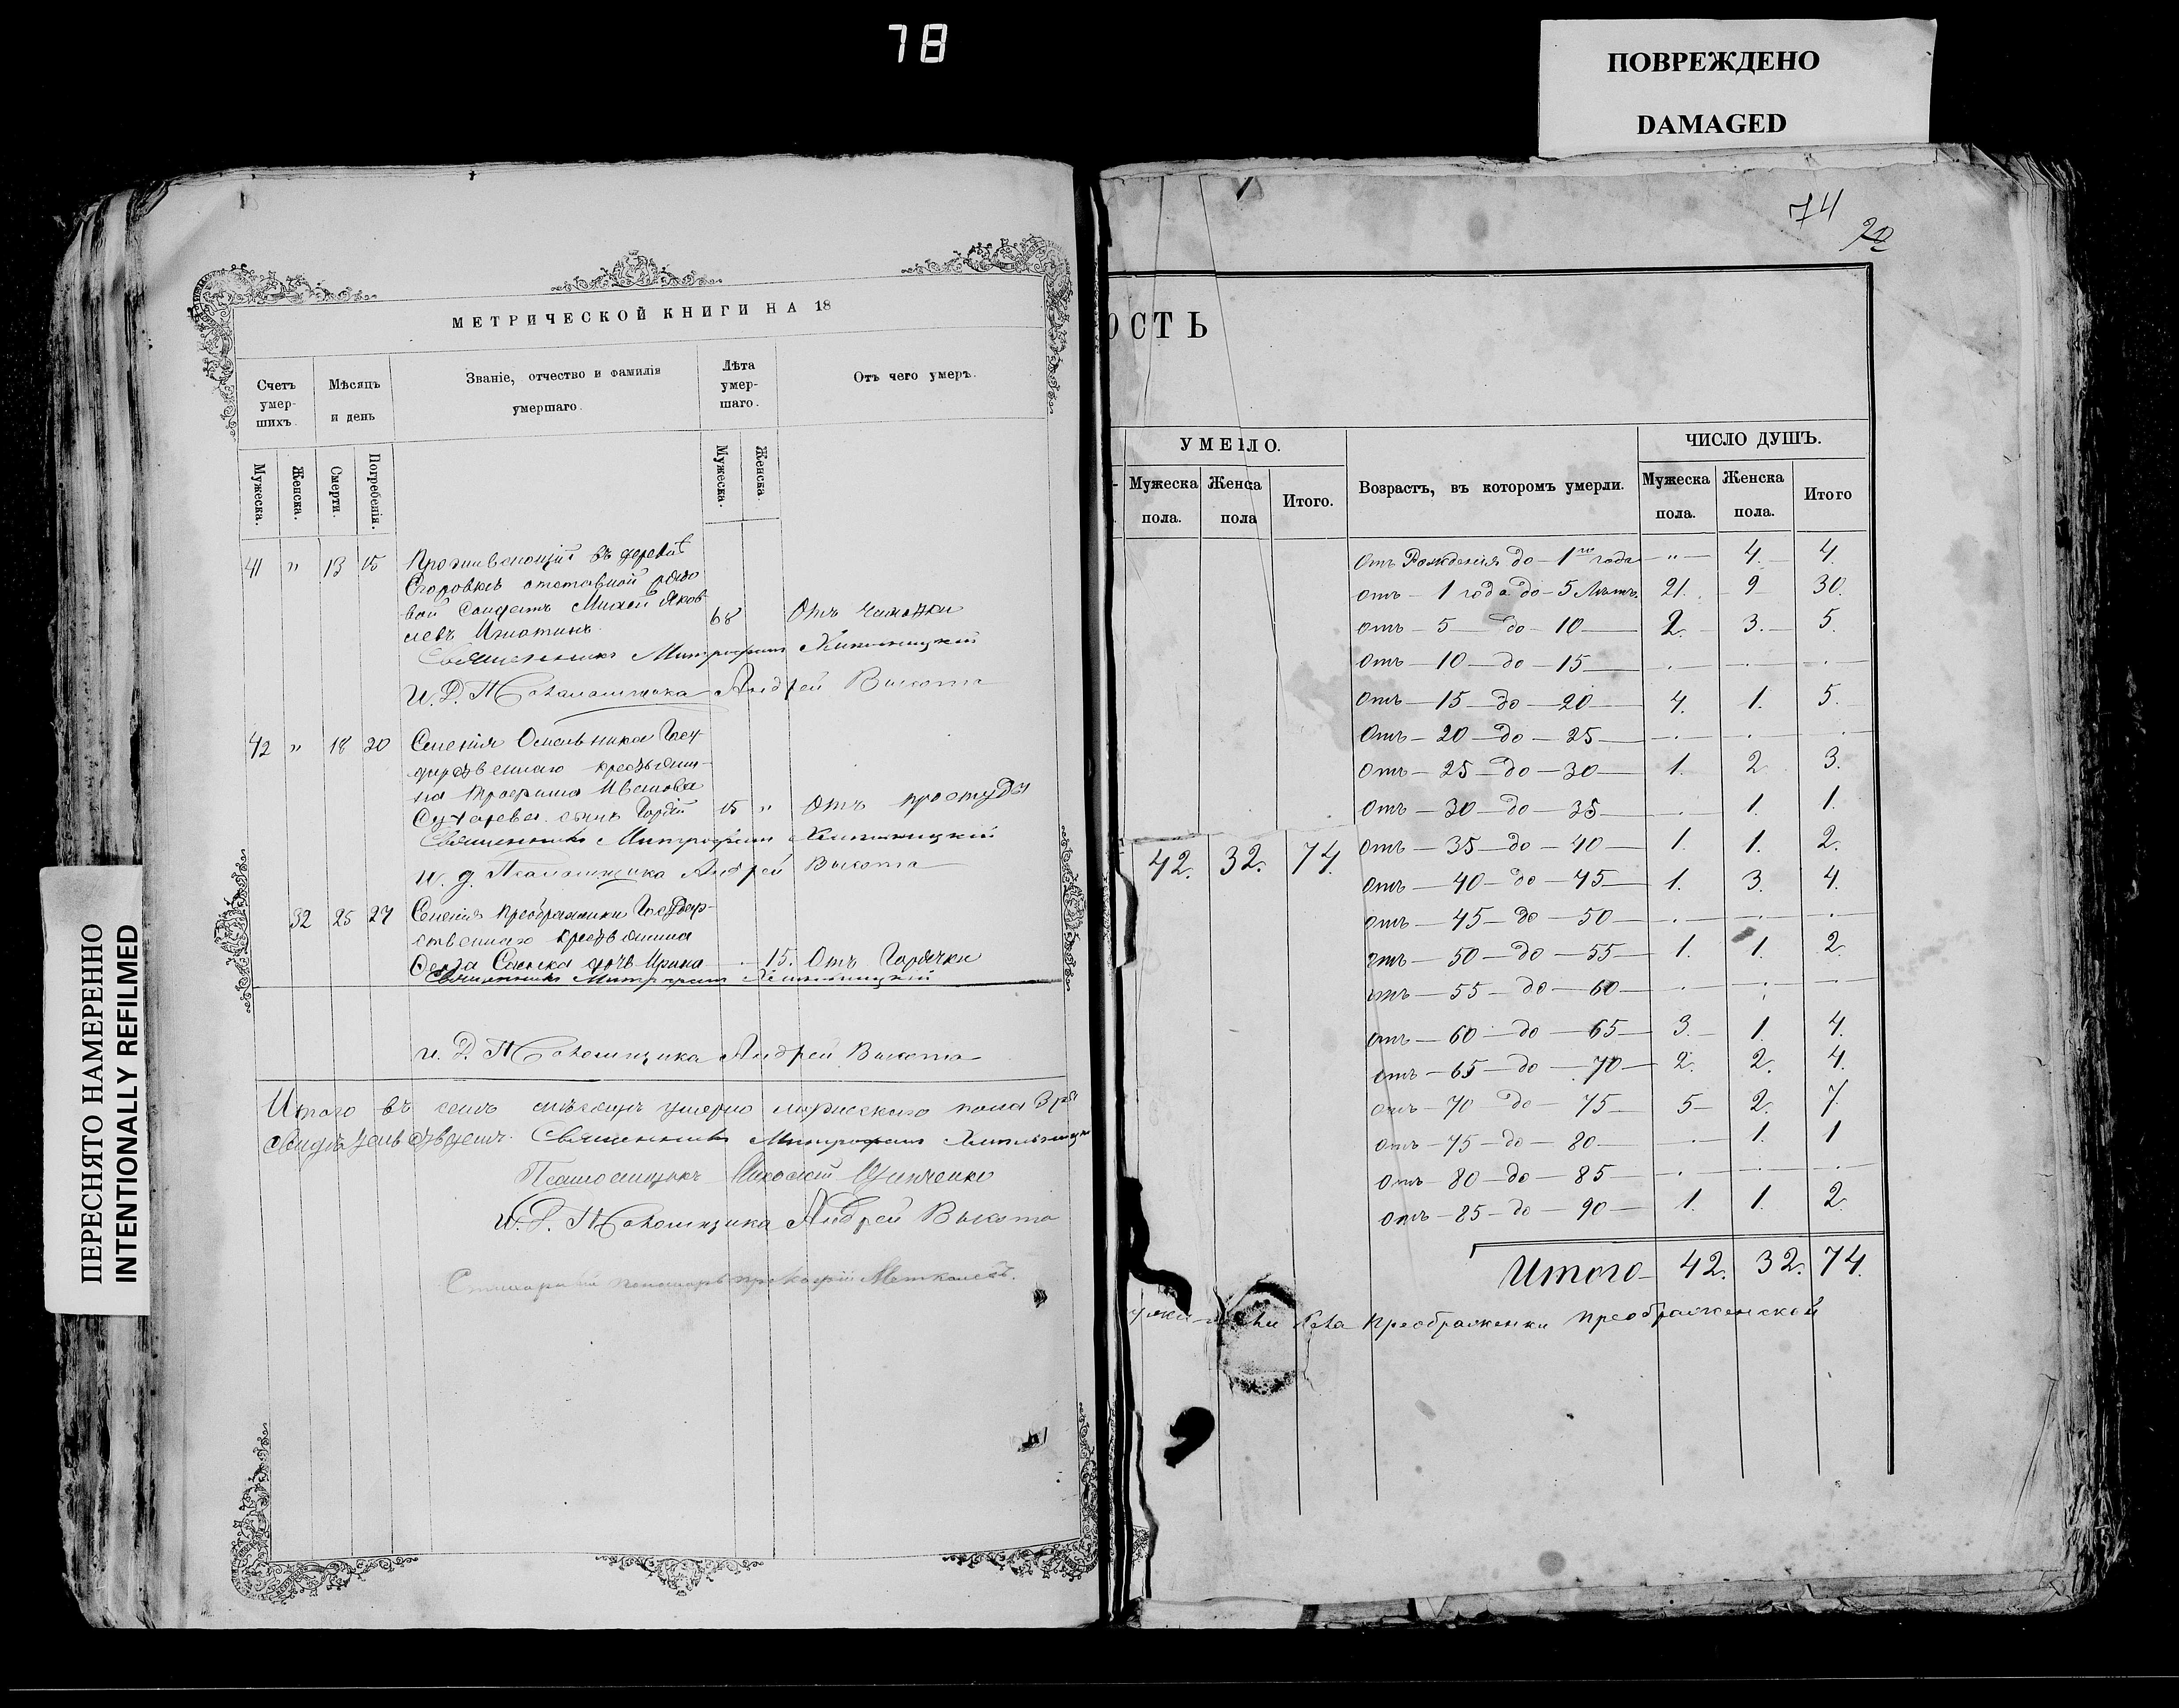 78
ПОВРЕЖДЕНО
DAMAGED
ПЕРЕСНЯТО НАМЕРЕННО
INTENTIONALLY REFILMED
МЕТРИЧЕСКОЙ КНИГИ НА 18
Счетъ умер- шихъ.
Мѣсяцъ и день
Званіе, отчество и фамилія умершаго.
Лѣта умер- шаго.
Отъ чего умеръ.
Мужеска. Женска. Смерти. Погребенія. Мужеска. Женска.
41 " 13 15 Проживающій въ деревнѣ
Егоровкѣ отставной рядо
вой Солдатъ Михей Яков
левъ Игнатинъ 68 Отъ чахотки
Священникъ Митрофанъ
И. Д. Псаломщика Андрей Высота
42 " 18 20 Селенія Осипенка Госу
дарственнаго крестьяни-
на Трофима Иванова
Сухарева сынъ Гордій 15 " Отъ простуды
Священникъ Митрофанъ
И. д. Псаломщика Андрей Высота
32 25 27 Селенія Преображенки Государ-
ственнаго крестьянина
дочь Ирина 15. Отъ Горячки
Священникъ Митрофанъ
И. Д. Псаломщика Андрей Высота
Итого въ семъ мѣсяцѣ умерло мужескаго пола
Священникъ Митрофанъ
Псаломщикъ Николай
И. Д. Псаломщика Андрей Высота
74
ОСТЬ
УМЕРЛО.
Мужеска пола. Женска пола Итого.
Возрастъ, въ которомъ умерли.
ЧИСЛО ДУШЪ.
Мужеска пола. Женска пола. Итого
42. 32. 74.
Отъ Рожденія до 1го года " 4. 4.
отъ 1 года до 5 Лѣтъ 21. 9 30.
отъ 5 до 10 2. 3. 5.
отъ 10 до 15 . . .
отъ 15 до 20 4. 1. 5.
отъ 20 до 25 . . .
отъ 25 до 30 1. 2 3.
отъ 30 до 35 . 1. 1.
отъ 35 до 40 1. 1. 2.
отъ 40 до 45 1. 3. 4.
отъ 45 до 50 . . .
отъ 50 до 55 1. 1. 2
отъ 55 до 60 . . .
отъ 60 до 65 3. 1. 4.
отъ 65 до 70 2. 2. 4.
отъ 70 до 75 5 2. 7.
отъ 75 до 80 . 1. 1
отъ 80 до 85 . . .
отъ 85 до 90 1. 1. 2.
Итого 42. 32. 74.
Села Преображенки Преображенской